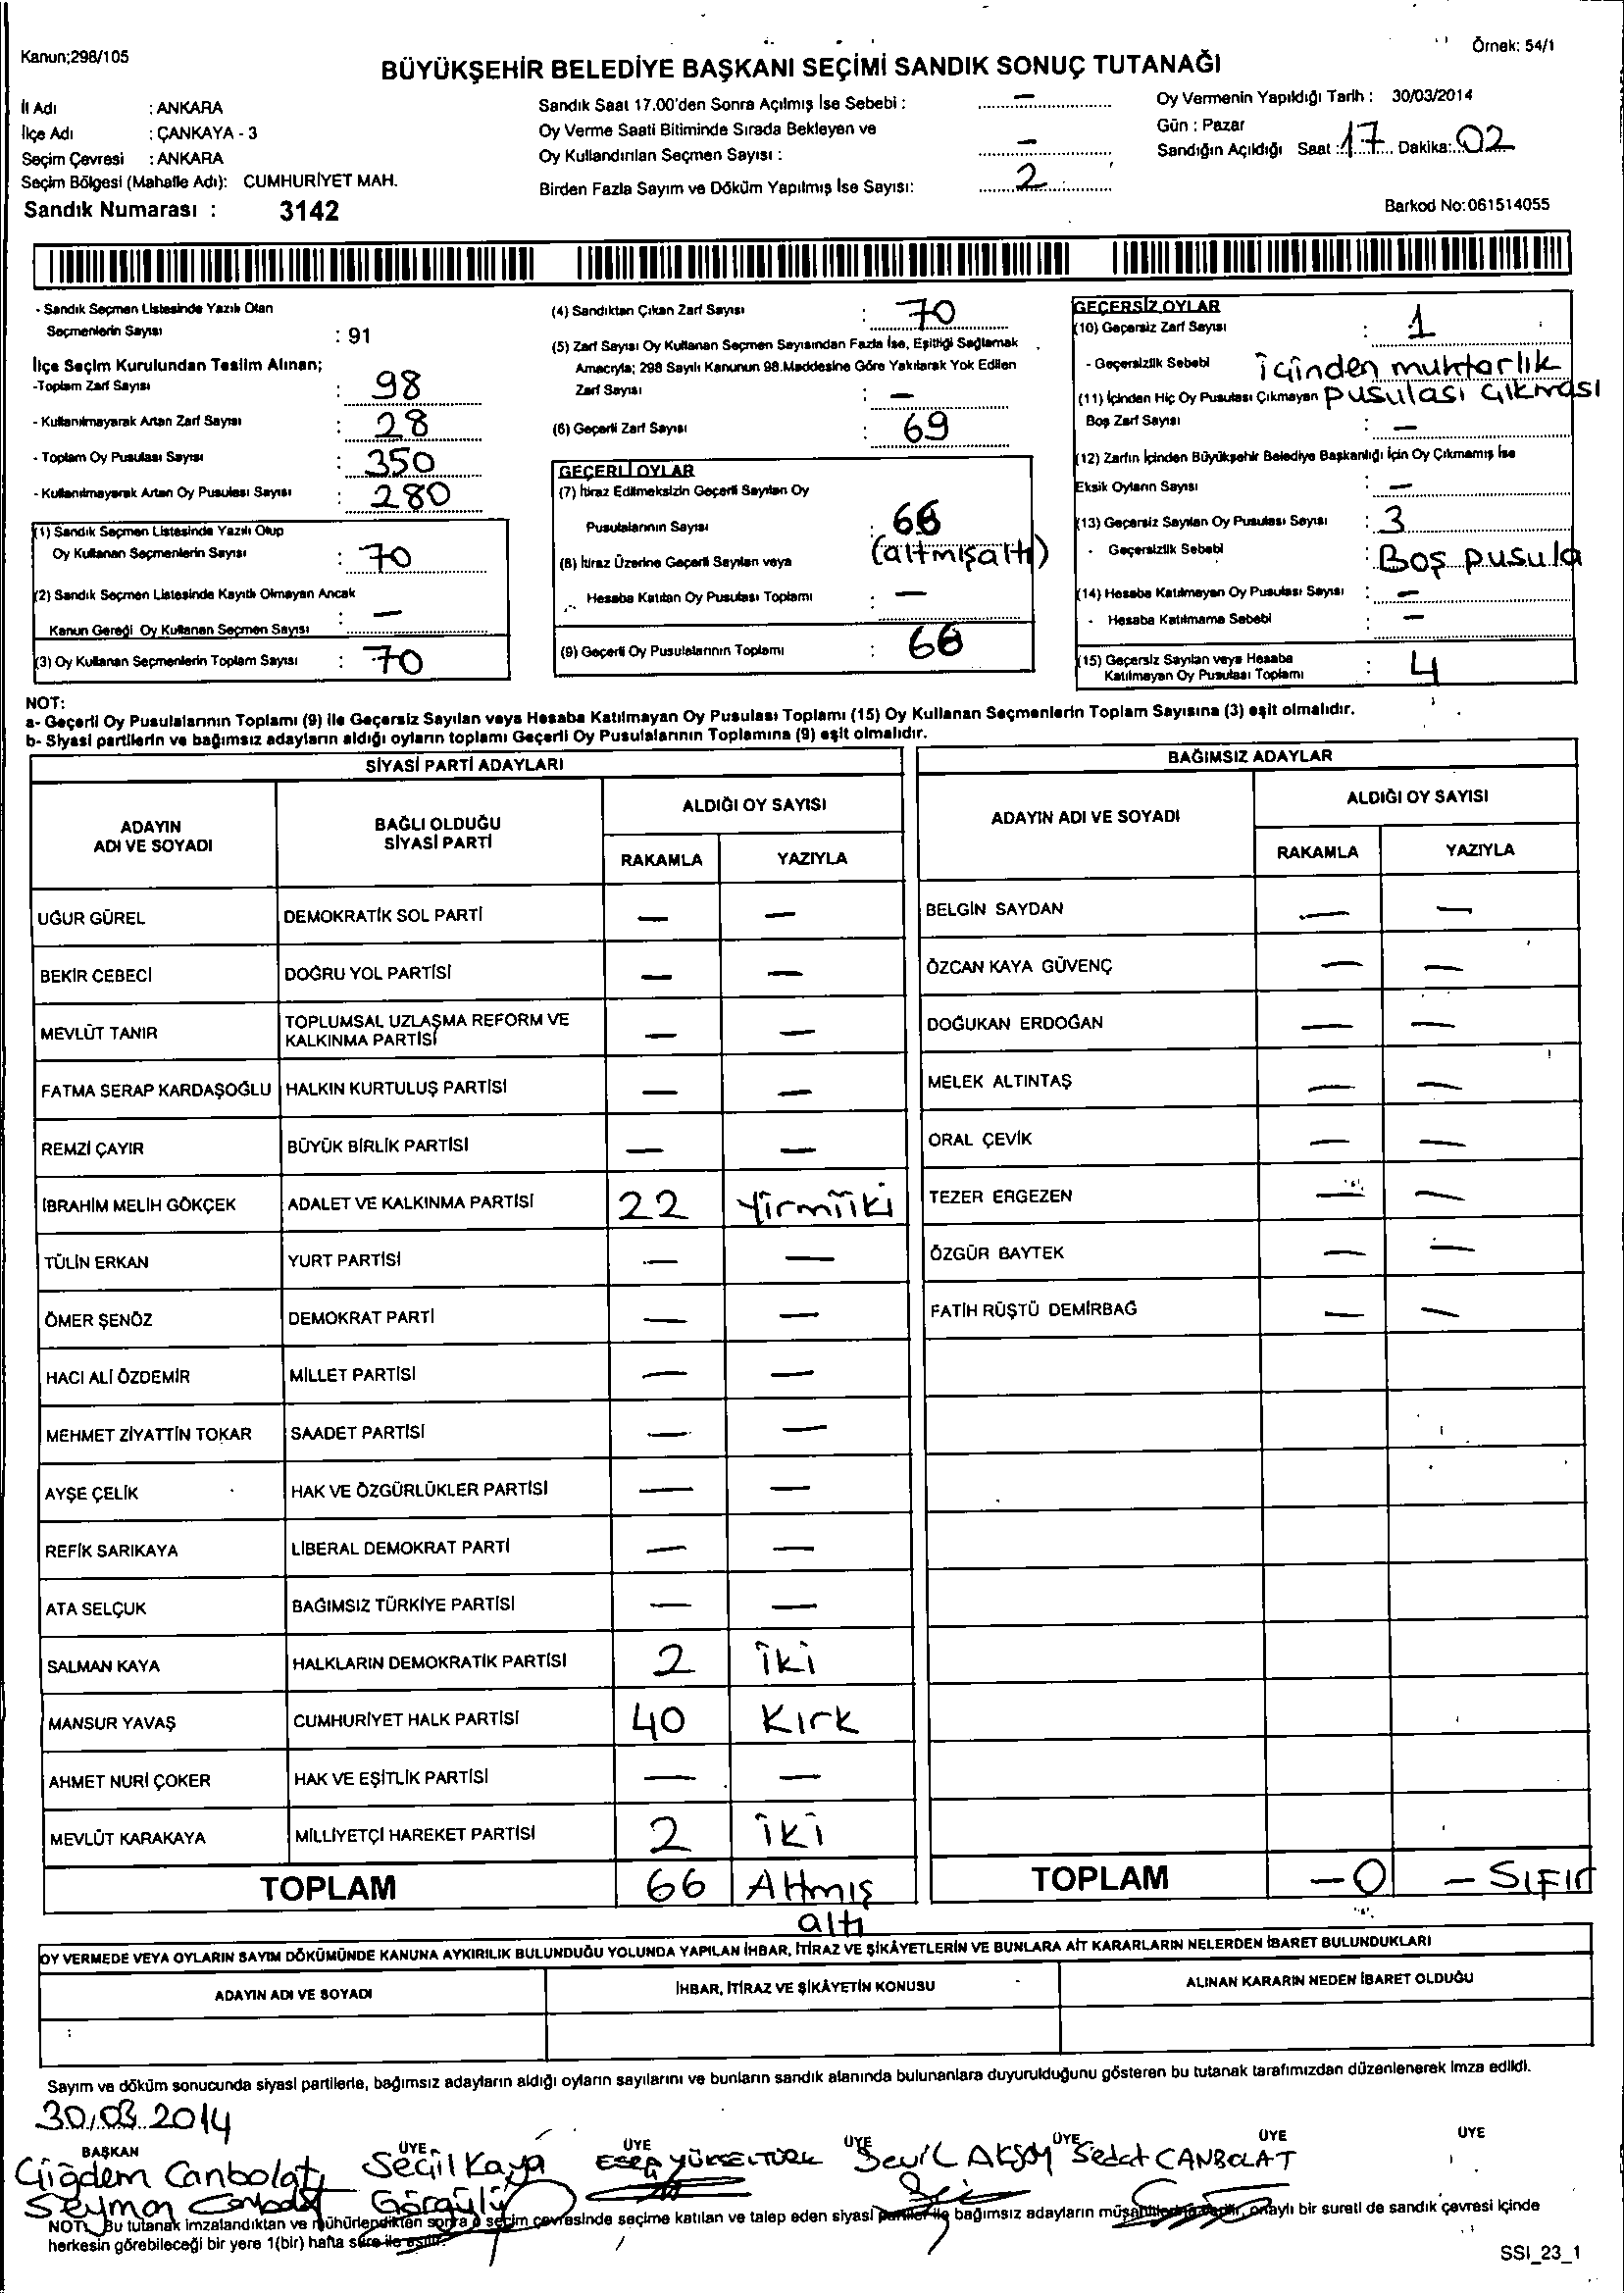 Kanun;298/105
Örnek: 54/1
BÜYÜKŞEHİR BELEDİYE BAŞKANI SEÇİMİ SANDIK SONUÇ TUTANAĞI
İl Adı : ANKARA
İlçe Adı : ÇANKAYA - 3
Seçim Çevresi : ANKARA
Seçim Bölgesi (Mahalle Adı): CUMHURİYET MAH.
Sandık Numarası : 3142
Sandık Saat 17.00'den Sonra Açılmış İse Sebebi : –
Oy Verme Saati Bitiminde Sırada Bekleyen ve
Oy Kullandırılan Seçmen Sayısı : –
Birden Fazla Sayım ve Döküm Yapılmış İse Sayısı: 2
Oy Vermenin Yapıldığı Tarih : 30/03/2014
Gün : Pazar
Sandığın Açıldığı Saat : 17 Dakika: 02
Barkod No:061514055
- Sandık Seçmen Listesinde Yazılı Olan
Seçmenlerin Sayısı : 91
İlçe Seçim Kurulundan Teslim Alınan;
-Toplam Zarf Sayısı : 98
- Kullanılmayarak Artan Zarf Sayısı : 28
- Toplam Oy Pusulası Sayısı : 350
- Kullanılmayarak Artan Oy Pusulası Sayısı : 280
(1) Sandık Seçmen Listesinde Yazılı Olup
Oy Kullanan Seçmenlerin Sayısı : 70
(2) Sandık Seçmen Listesinde Kayıtlı Olmayan Ancak
Kanun Gereği Oy Kullanan Seçmen Sayısı : –
(3) Oy Kullanan Seçmenlerin Toplam Sayısı : 70
(4) Sandıktan Çıkan Zarf Sayısı : 70
(5) Zarf Sayısı Oy Kullanan Seçmen Sayısından Fazla İse, Eşitliği Sağlamak
Amacıyla; 298 Sayılı Kanunun 98.Maddesine Göre Yakılarak Yok Edilen
Zarf Sayısı : –
(6) Geçerli Zarf Sayısı : 69
GEÇERLİ OYLAR
(7) İtiraz Edilmeksizin Geçerli Sayılan Oy
Pusulalarının Sayısı : 66
(altmışaltı)
(8) İtiraz Üzerine Geçerli Sayılan veya
Hesaba Katılan Oy Pusulası Toplamı : –
(9) Geçerli Oy Pusulalarının Toplamı : 66
GEÇERSİZ OYLAR
(10) Geçersiz Zarf Sayısı : 1
- Geçersizlik Sebebi içinden muhtarlık
pusulası çıkması
(11) İçinden Hiç Oy Pusulası Çıkmayan
Boş Zarf Sayısı : –
(12) Zarfın İçinden Büyükşehir Belediye Başkanlığı İçin Oy Çıkmamış İse
Eksik Oyların Sayısı : –
(13) Geçersiz Sayılan Oy Pusulası Sayısı : 3
- Geçersizlik Sebebi : Boş pusula
(14) Hesaba Katılmayan Oy Pusulası Sayısı : –
- Hesaba Katılmama Sebebi : –
(15) Geçersiz Sayılan veya Hesaba
Katılmayan Oy Pusulası Toplamı : 4
NOT:
a- Geçerli Oy Pusulalarının Toplamı (9) ile Geçersiz Sayılan veya Hesaba Katılmayan Oy Pusulası Toplamı (15) Oy Kullanan Seçmenlerin Toplam Sayısına (3) eşit olmalıdır.
b- Siyasi partilerin ve bağımsız adayların aldığı oyların toplamı Geçerli Oy Pusulalarının Toplamına (9) eşit olmalıdır.
SİYASİ PARTİ ADAYLARI
ADAYIN
ADI VE SOYADI
BAĞLI OLDUĞU
SİYASİ PARTİ
ALDIĞI OY SAYISI
RAKAMLA YAZIYLA
UĞUR GÜREL DEMOKRATİK SOL PARTİ – –
BEKİR CEBECİ DOĞRU YOL PARTİSİ – –
MEVLÜT TANIR TOPLUMSAL UZLAŞMA REFORM VE
KALKINMA PARTİSİ – –
FATMA SERAP KARDAŞOĞLU HALKIN KURTULUŞ PARTİSİ – –
REMZİ ÇAYIR BÜYÜK BİRLİK PARTİSİ – –
İBRAHİM MELİH GÖKÇEK ADALET VE KALKINMA PARTİSİ 22 Yirmiiki
TÜLİN ERKAN YURT PARTİSİ – –
ÖMER ŞENÖZ DEMOKRAT PARTİ – –
HACI ALİ ÖZDEMİR MİLLET PARTİSİ – –
MEHMET ZİYATTİN TOKAR SAADET PARTİSİ – –
AYŞE ÇELİK HAK VE ÖZGÜRLÜKLER PARTİSİ – –
REFİK SARIKAYA LİBERAL DEMOKRAT PARTİ – –
ATA SELÇUK BAĞIMSIZ TÜRKİYE PARTİSİ – –
SALMAN KAYA HALKLARIN DEMOKRATİK PARTİSİ 2 iki
MANSUR YAVAŞ CUMHURİYET HALK PARTİSİ 40 Kırk
AHMET NURİ ÇOKER HAK VE EŞİTLİK PARTİSİ – –
MEVLÜT KARAKAYA MİLLİYETÇİ HAREKET PARTİSİ 2 iki
TOPLAM 66 Altmış
altı
BAĞIMSIZ ADAYLAR
ADAYIN ADI VE SOYADI
ALDIĞI OY SAYISI
RAKAMLA YAZIYLA
BELGİN SAYDAN – –
ÖZCAN KAYA GÜVENÇ – –
DOĞUKAN ERDOĞAN – –
MELEK ALTINTAŞ – –
ORAL ÇEVİK – –
TEZER ERGEZEN – –
ÖZGÜR BAYTEK – –
FATİH RÜŞTÜ DEMİRBAĞ – –
TOPLAM –0 – SIFIR
OY VERMEDE VEYA OYLARIN SAYIM DÖKÜMÜNDE KANUNA AYKIRILIK BULUNDUĞU YOLUNDA YAPILAN İHBAR, İTİRAZ VE ŞİKÂYETLERİN VE BUNLARA AİT KARARLARIN NELERDEN İBARET BULUNDUKLARI
ADAYIN ADI VE SOYADI
İHBAR, İTİRAZ VE ŞİKÂYETİN KONUSU
ALINAN KARARIN NEDEN İBARET OLDUĞU
Sayım ve döküm sonucunda siyasi partilerle, bağımsız adayların aldığı oyların sayılarını ve bunların sandık alanında bulunanlara duyurulduğunu gösteren bu tutanak tarafımızdan düzenlenerek imza edildi.
30.03.2014
BAŞKAN ÜYE ÜYE ÜYE ÜYE ÜYE ÜYE
Çiğdem Canbolat Seçil Kaya YÜKSELTÜRK Sevil AKSOY Sedat CANBOLAT
Seyman Görgülü
NOT: Bu tutanak imzalandıktan ve mühürlendikten sonra o seçim çevresinde seçime katılan ve talep eden siyasi partiler ile bağımsız adayların onaylı bir sureti de sandık çevresi içinde
herkesin görebileceği bir yere 1(bir) hafta süre ile asılır.
SSI_23_1